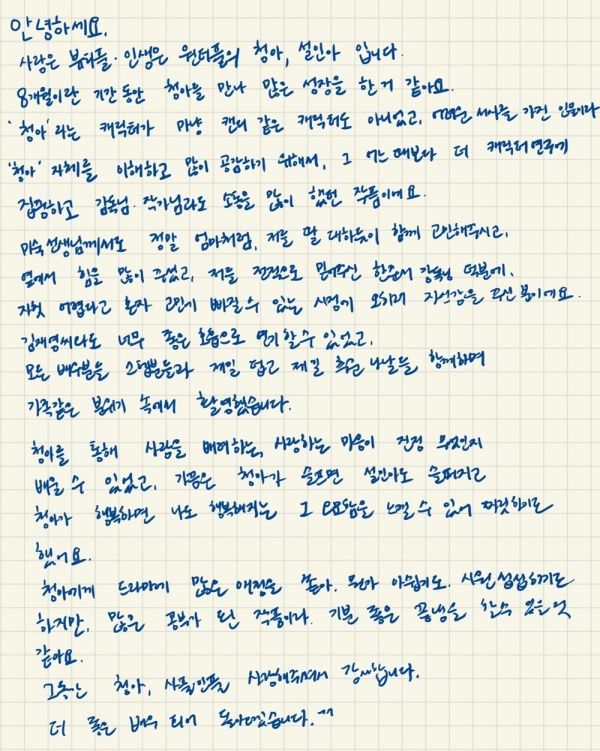 안녕하세요.
사랑은 뷰티풀·인생은 원더풀의 청아, 설인아 입니다.
8개월이란 기간동안 청아를 만나 많은 성장을 한 거 같아요.
'청아'라는 캐릭터가 마냥 캔디 같은 캐릭터도 아니었고, 어려운 서사를 가진 인물이라
'청아' 자체를 이해하고 많이 공감하기 위해서, 그 어느 때보다 더 캐릭터 연구에
집중하고 감독님·작가님과도 소통을 많이 했던 작품이에요.
미숙선생님께서도 정말 엄마처럼, 저를 딸 대하듯이 함께 고민해주시고,
옆에서 힘을 많이 주셨고, 저를 전적으로 믿어주신 한준서 감독님 덕분에.
자칫 어렵다고 혼자 고민에 빠질 수 있는 시점에 오히려 자신감을 주신 분이에요.
김재영씨와도 너무 좋은 호흡으로 연기할 수 있었고,
모든 배우분들 스탭분들과 제일 덥고 제일 추운 나날들 함께하며
가족같은 분위기 속에서 촬영했습니다.
청아를 통해 사람을 배려하는, 사랑하는 마음이 진정 무엇인지
배울 수 있었고, 가끔은 청아가 슬프면 설인아도 슬퍼지고
청아가 행복하면 나도 행복해지는 그 묘함을 느낄 수 있어 짜릿하기도
했어요.
청아에게 드라마에 많은 애정을 쏟아. 뭔가 아쉽기도. 시원섭섭하기도
하지만, 많은 공부가 된 작품이라. 기분 좋은 끝냄을 할 수 있을 것
같아요.
그동안 청아, 사풀인풀 사랑해주셔서 감사합니다.
더 좋은 배우 되어 돌아오겠습니다.^^